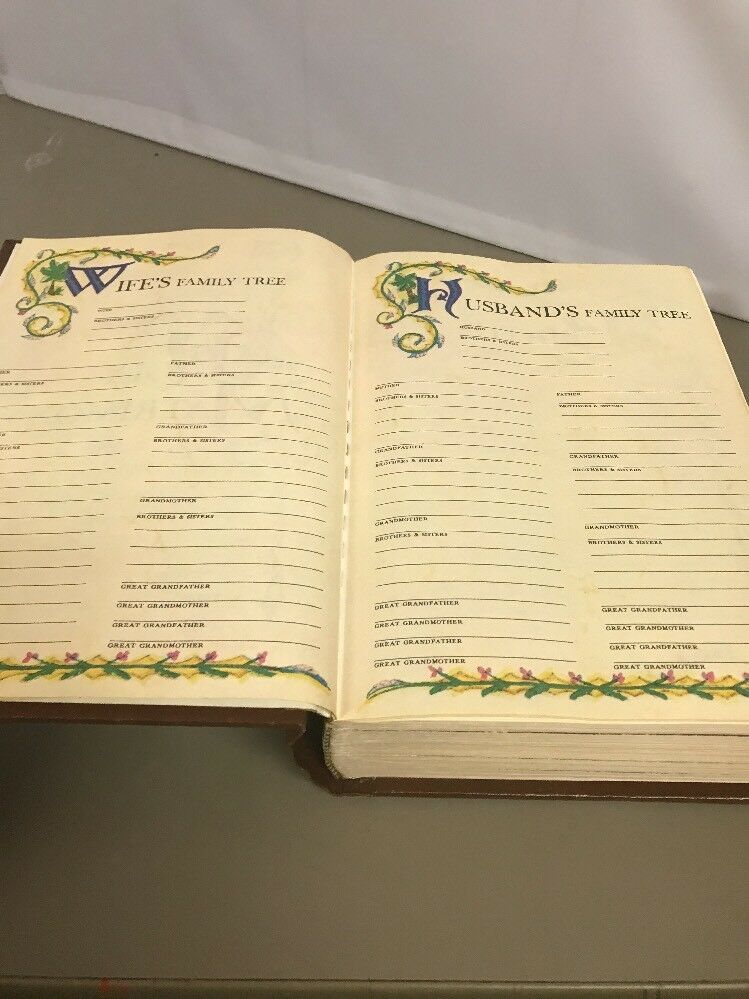 WIFE'S FAMILY TREE
WIFE
BROTHERS & SISTERS
FATHER
BROTHERS & SISTERS
GRANDFATHER
BROTHERS & SISTERS
GRANDMOTHER
BROTHERS & SISTERS
GREAT GRANDFATHER
GREAT GRANDMOTHER
GREAT GRANDFATHER
GREAT GRANDMOTHER
HUSBAND'S FAMILY TREE
HUSBAND
BROTHERS & SISTERS
MOTHER
BROTHERS & SISTERS
GRANDFATHER
BROTHERS & SISTERS
GRANDMOTHER
BROTHERS & SISTERS
GREAT GRANDFATHER
GREAT GRANDMOTHER
GREAT GRANDFATHER
GREAT GRANDMOTHER
FATHER
BROTHERS & SISTERS
GRANDFATHER
BROTHERS & SISTERS
GRANDMOTHER
BROTHERS & SISTERS
GREAT GRANDFATHER
GREAT GRANDMOTHER
GREAT GRANDFATHER
GREAT GRANDMOTHER